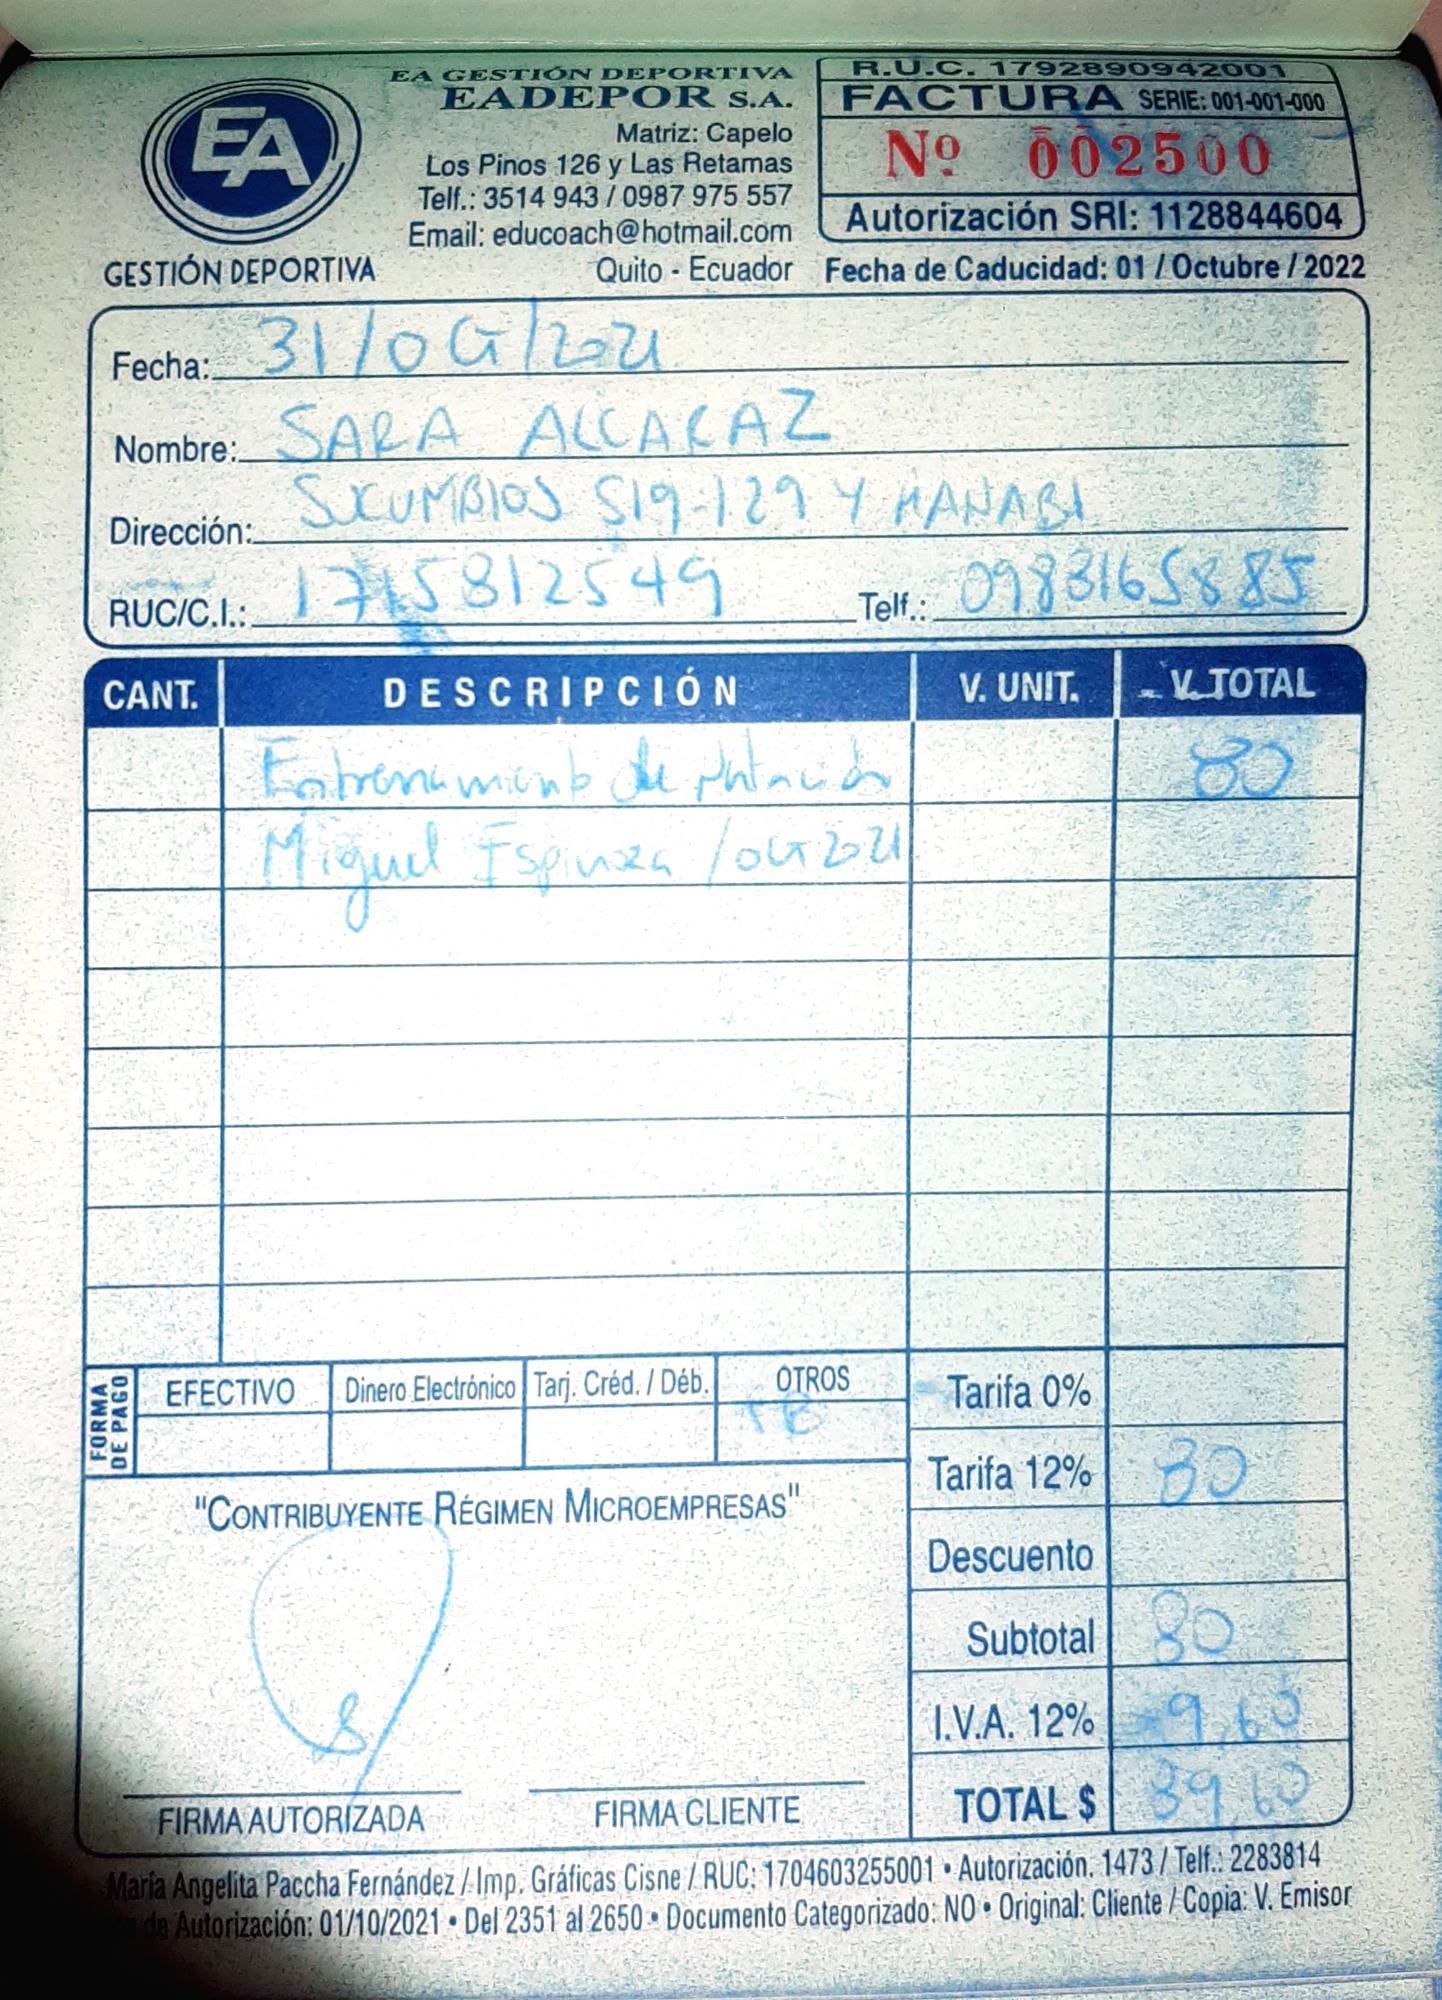 EA
GESTIÓN DEPORTIVA
EA GESTIÓN DEPORTIVA
EADEPOR S.A.
Matriz: Capelo
Los Pinos 126 y Las Retamas
Telf.: 3514 943 / 0987 975 557
Email: educoach@hotmail.com
Quito - Ecuador
R.U.C. 1792890942001
FACTURA SERIE: 001-001-000
Nº 002500
Autorización SRI: 1128844604
Fecha de Caducidad: 01 / Octubre / 2022
Fecha: 31/oct/2021
Nombre: SARA ALCARAZ
Dirección: SUCUMBIOS S19-129 Y MANABI
RUC/C.I.: 1715812549 Telf.: 0983165885
CANT. DESCRIPCIÓN V. UNIT. V. TOTAL
Entrenamiento de Natación 80
Miguel Espinoza /oct 2021
FORMA DE PAGO
EFECTIVO Dinero Electrónico Tarj. Créd. / Déb. OTROS
Tarifa 0%
Tarifa 12% 80
Descuento
Subtotal 80
I.V.A. 12% 9,60
TOTAL $ 89,60
"CONTRIBUYENTE RÉGIMEN MICROEMPRESAS"
FIRMA AUTORIZADA FIRMA CLIENTE
María Angelita Paccha Fernández / Imp. Gráficas Cisne / RUC: 1704603255001 • Autorización. 1473 / Telf.: 2283814
de Autorización: 01/10/2021 • Del 2351 al 2650 • Documento Categorizado: NO • Original: Cliente / Copia: V. Emisor